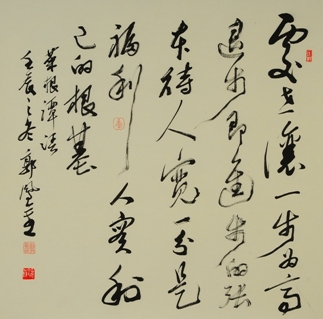 處世讓一步为高
退步即進步的張
本待人寬一分是
福利人实利
己的根基
菜根譚语
壬辰之冬郭